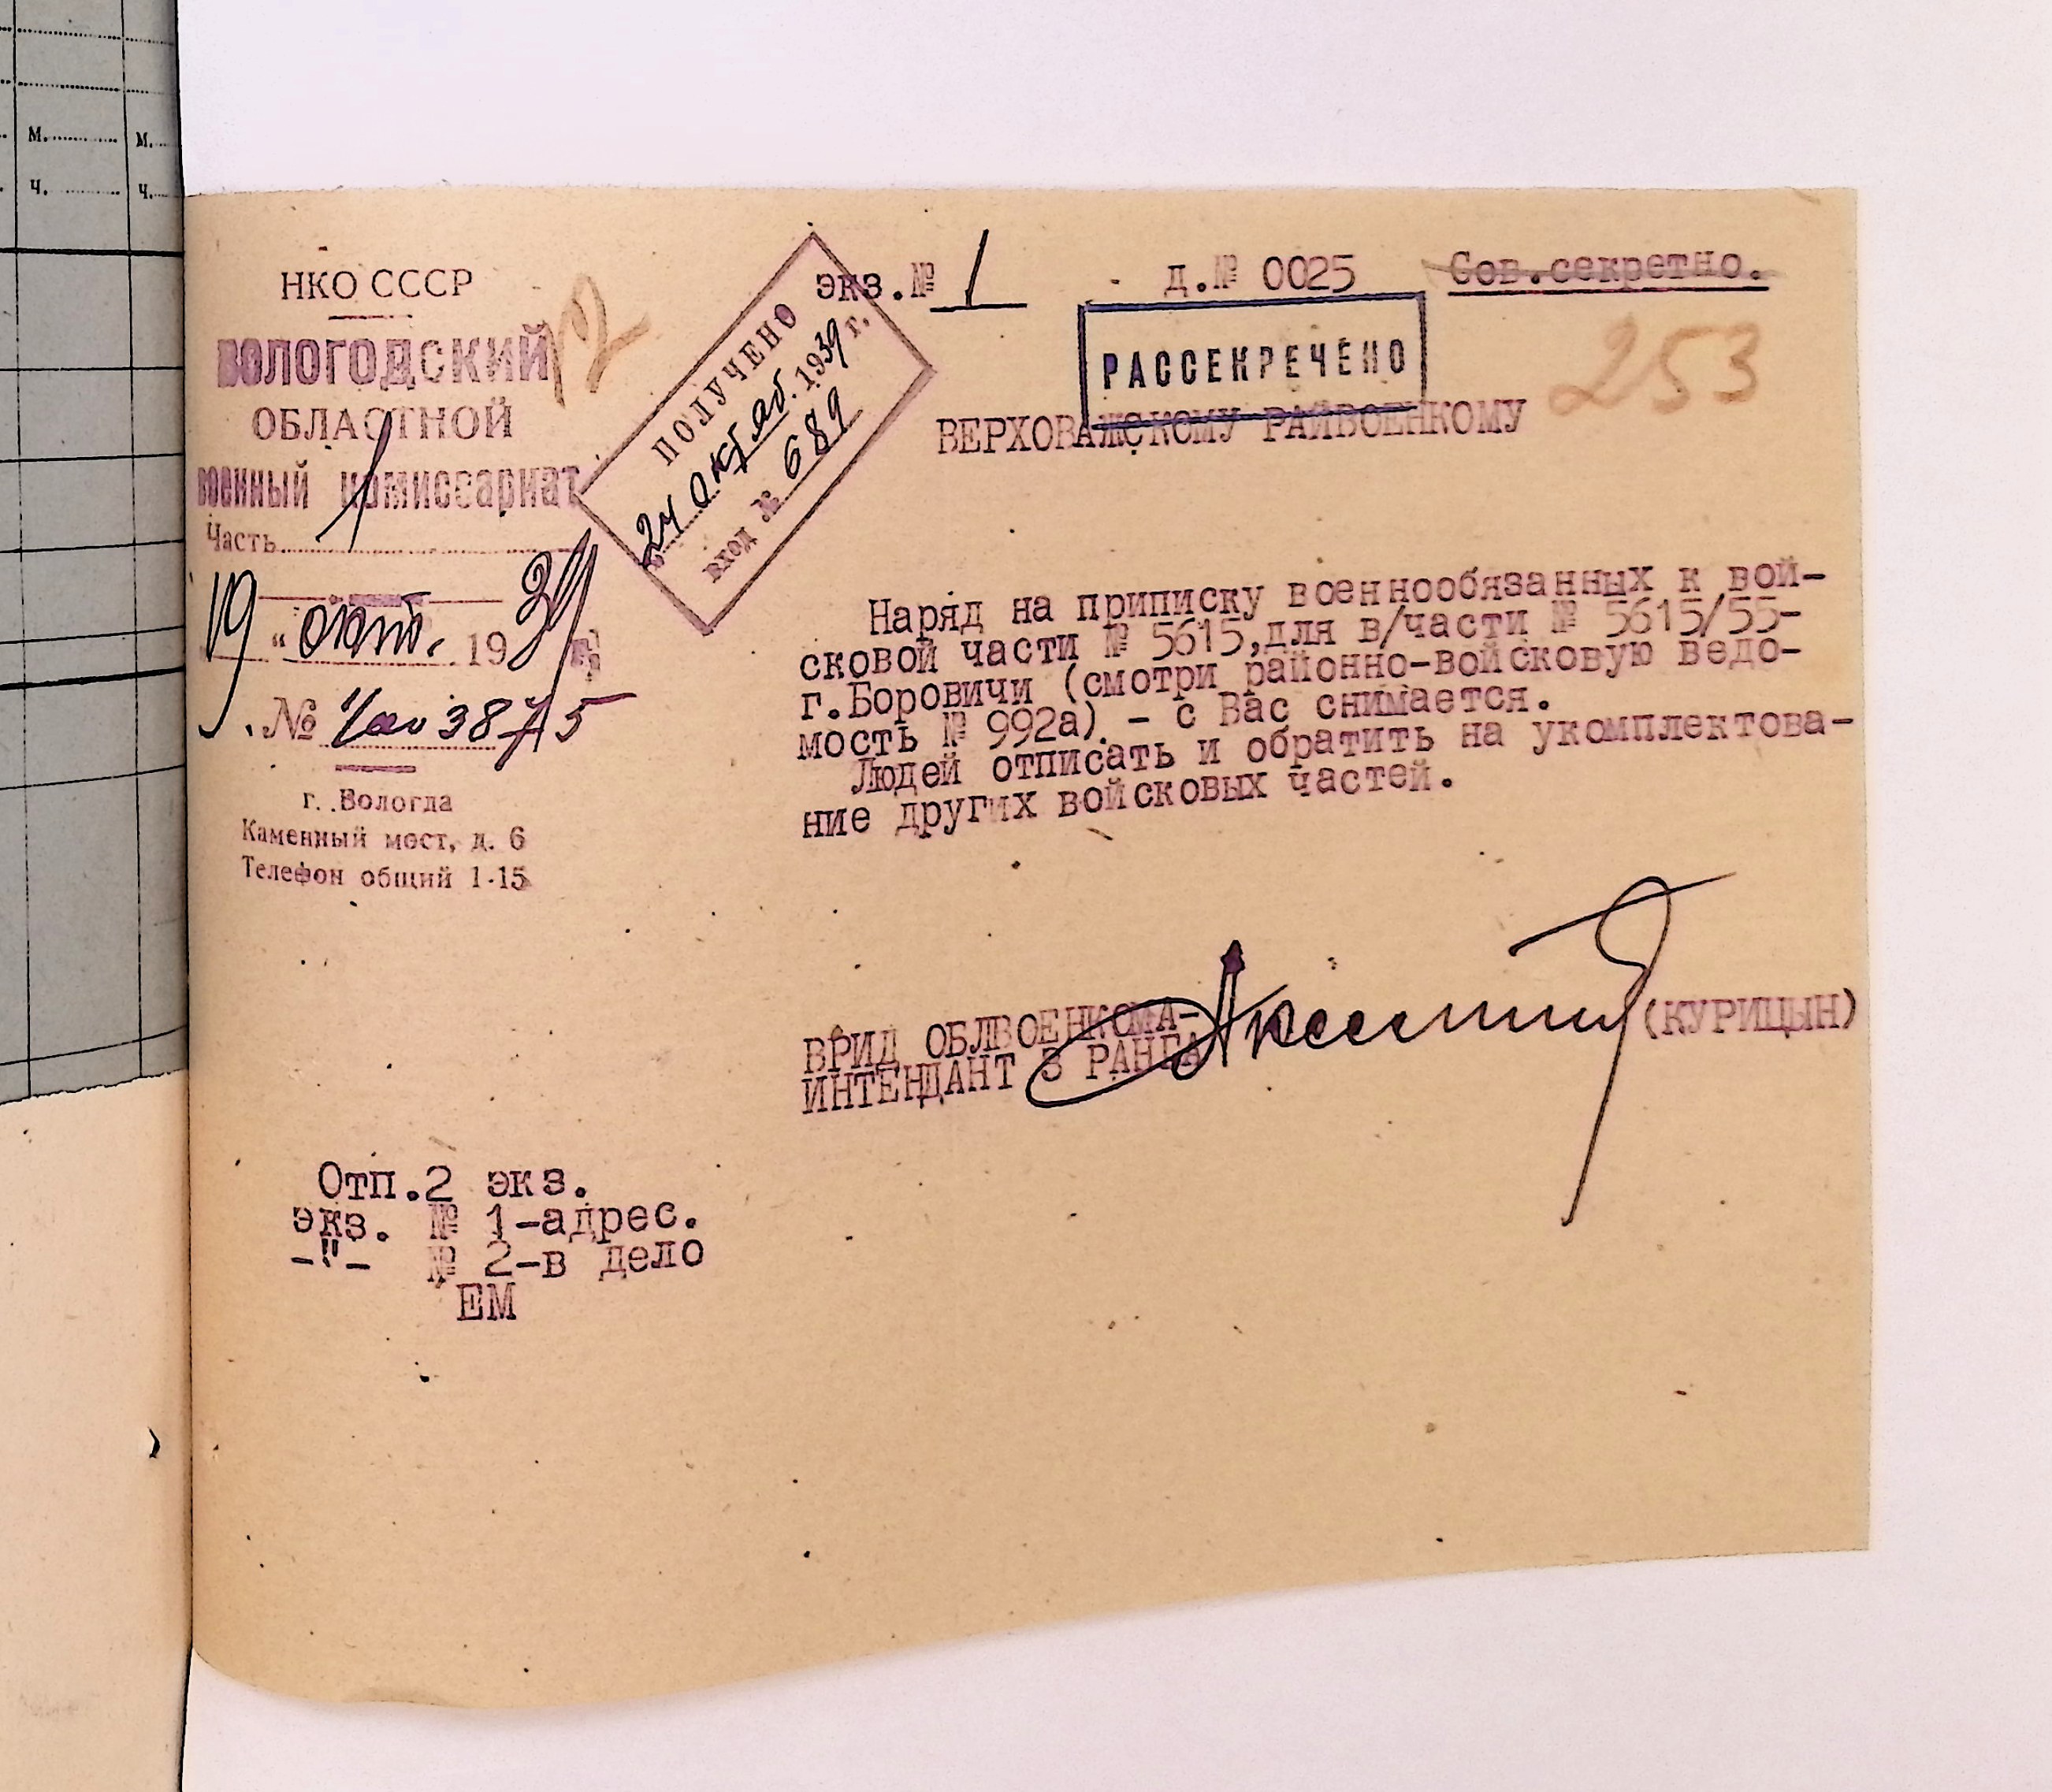 м. м.
ч. ч.
экз.№ 1 д.№ 0025 Сов.секретно.
НКО СССР
ВОЛОГОДСКИЙ
ОБЛАСТНОЙ
военный комиссариат
Часть 1
19 " окт. 1939 г.
№ 3875
г. Вологда
Каменный мост, д. 6
Телефон общий 1-15
12
ПОЛУЧЕНО
24 октяб. 1939 г.
вход № 689
РАССЕКРЕЧЕНО
253
ВЕРХОВАЖСКОМУ РАЙВОЕНКОМУ
Наряд на приписку военнообязанных к вой-
сковой части № 5615,для в/части № 5615/55-
г.Боровичи (смотри районно-войсковую ведо-
мость № 992а). - с Вас снимается.
Людей отписать и обратить на укомплектова-
ние других войсковых частей.
ВРИД ОБЛВОЕНКОМА-
ИНТЕНДАНТ 3 РАНГА (КУРИЦЫН)
Отп.2 экз.
экз. № 1-адрес.
-"- № 2-в дело
ЕМ